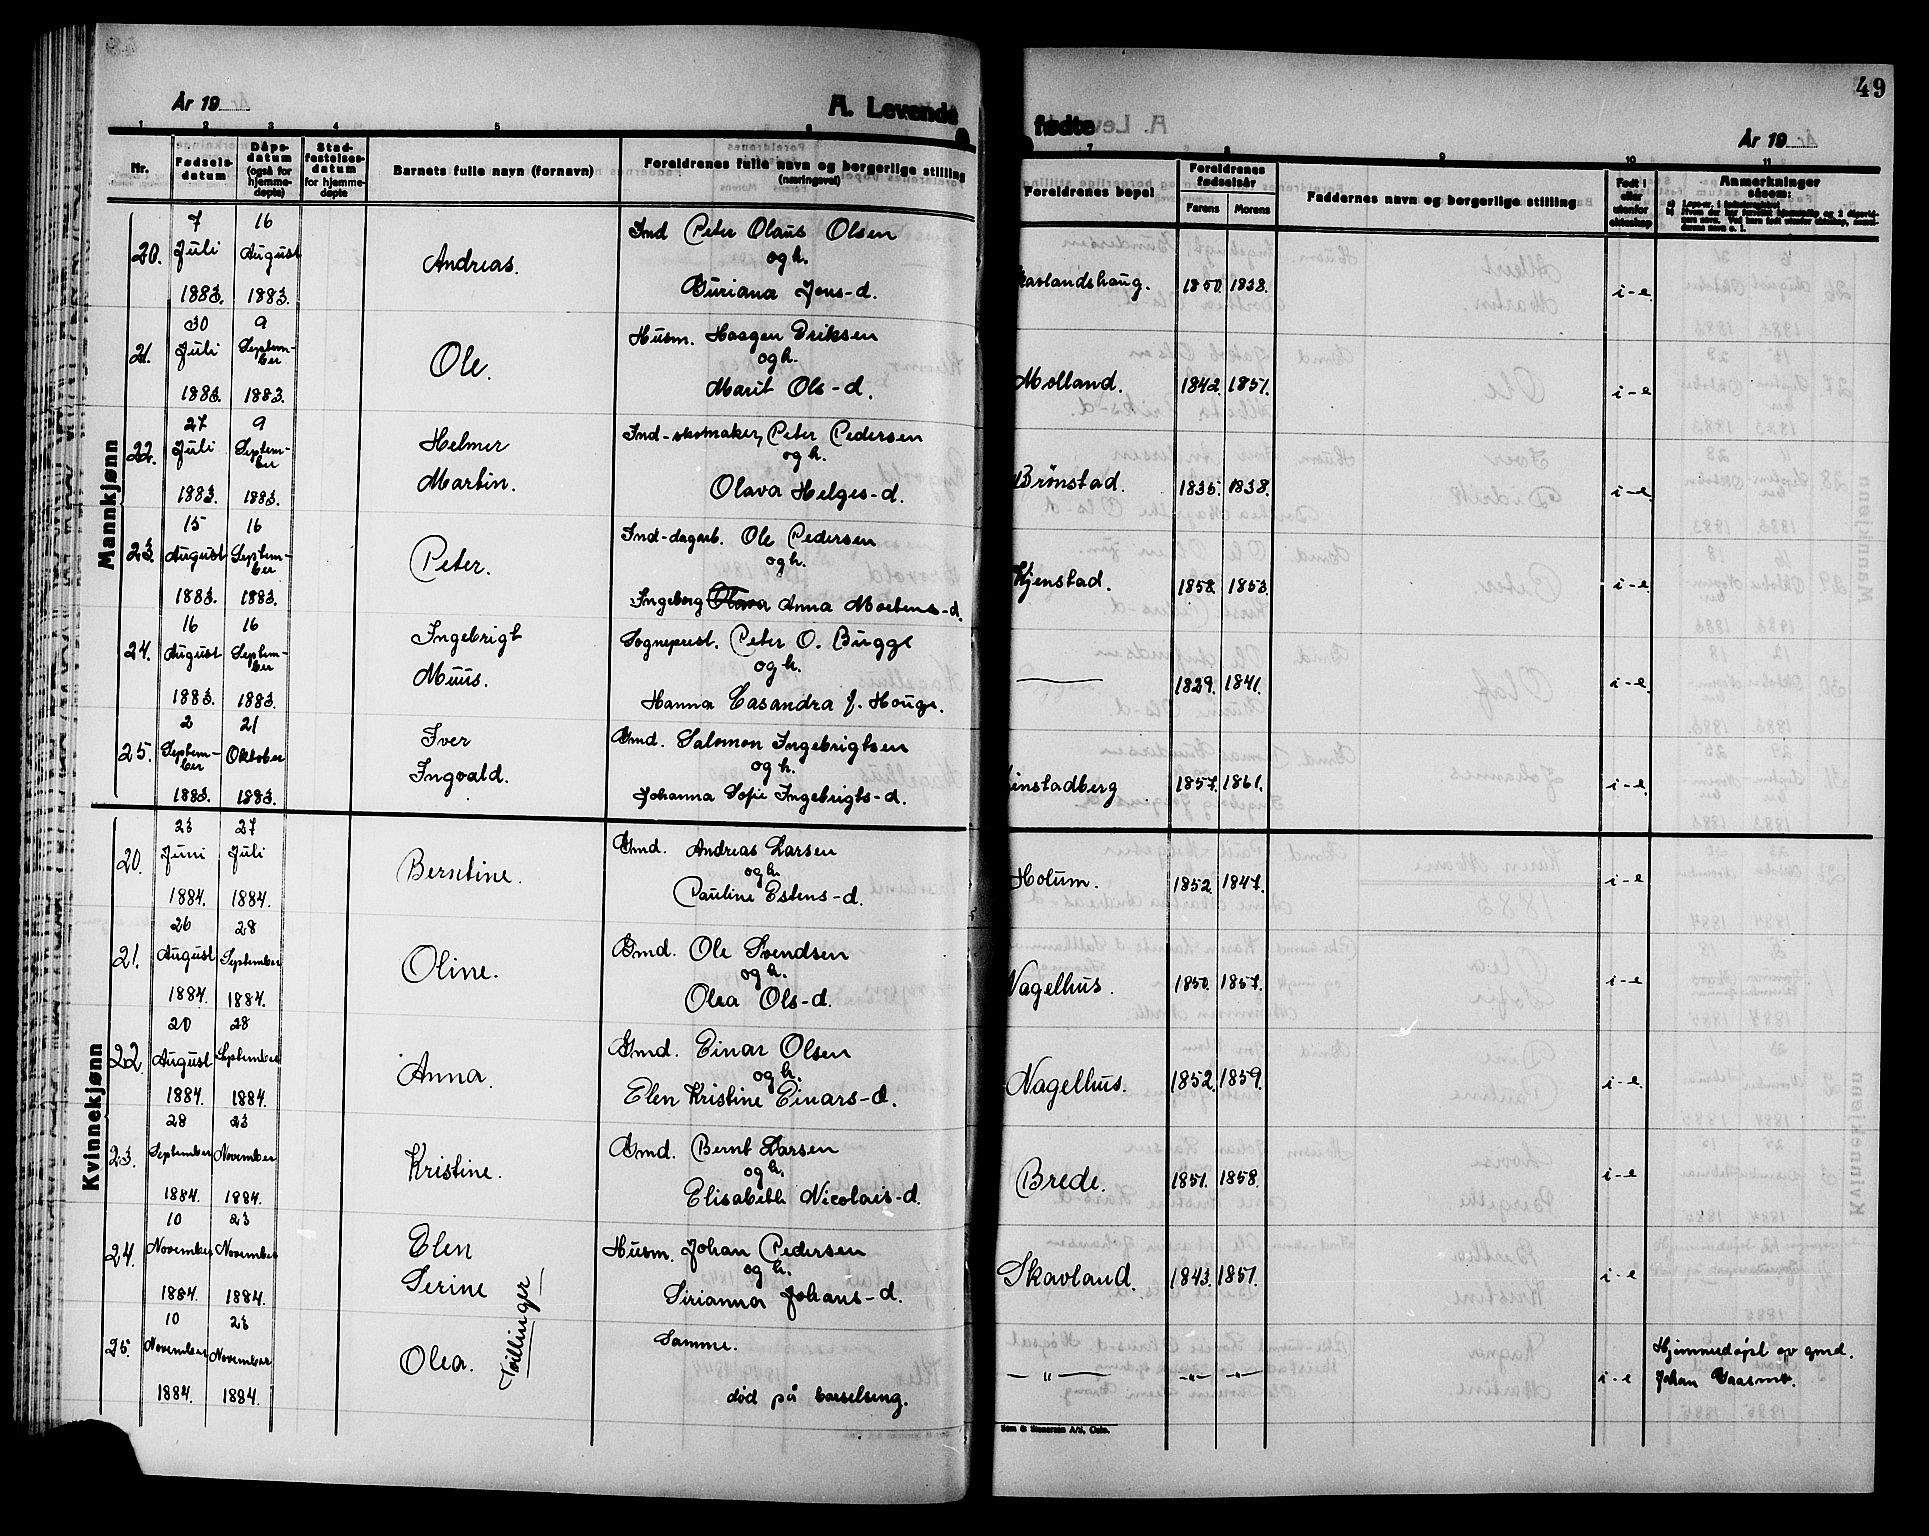 År 19
A. Levende
fødte
År 19
49
1 2 3 4 5 6
7 8 9 10 11
Nr.
Fødsels-
datum
Dåps-
datum
(også for
hjemme-
døpte)
Stad-
festelses-
datum
for hjemme-
døpte
Barnets fulle navn (fornavn)
Foreldrenes fulle navn og borgerlige stilling
(næringsvei)
Foreldrenes bopel
Foreldrenes
fødselsår
Farens
Morens
Faddernes navn og borgerlige stilling
Født i
eller
utenfor
ekteskap
Anmerkninger
såsom:
Mannkjønn
20. 7 Juli 1883. 16 August 1883. Andreas.
Ind Peter Olaus Olsen
og h.
Guriana Jens-d.
Skavlandshaug. 1850. 1838. i-e.
21. 30 Juli 1883. 9 September 1883. Ole.
Husm. Haagen Eriksen
og h.
Marit Ols-d.
Molland. 1842. 1851. i-e
22. 27 Juli 1883. 9 September 1883. Helmer Martin.
Ind-skomaker, Peter Pedersen
og h.
Olava Helges-d.
Brønstad. 1835. 1838. i-e
23. 15 August 1883. 16 September 1883. Peter.
Ind-dagarb. Ole Pedersen
og h.
Ingeborg Olava Anna Mortens-d.
Kjenstad. 1858. 1853. i-e
24. 16 August 1883. 16 September 1883. Ingebrigt Muus.
Sogneprest. Peter O. Bugge
og h.
Hanna Casandra J. Houge.
1829. 1841. i-e
25. 2 September 1883. 21 Oktober 1883. Iver Ingvald.
Gmd. Salomon Ingebrigtsen
og h.
Johanna Sofie Ingebrigts-d.
instadberg 1857. 1861. i-e
Kvinnekjønn
20. 23 Juni 1884. 27 Juli 1884. Berntine.
Gmd. Andreas Larsen
og h.
Pauline Estens-d.
Holum. 1852. 1847. i-e
21. 26 August 1884. 28 September 1884. Oline.
Gmd. Ole Svendsen
og h.
Olea Ols-d.
Nagelhus. 1850. 1857. i-e
22. 20 August 1884. 28 September 1884. Anna.
Gmd. Einar Olsen
og h.
Elen Kristine Einars-d.
Nagelhus. 1852. 1859. i-e
23. 28 September 1884. 23 November 1884. Kristine.
Gmd. Bernt Larsen
og h.
Elisabeth Nicolais-d.
Brede. 1851. 1858. i-e
24. 10 November 1884. 23 November 1884. Elen Serine
Tvillinger
Husm. Johan Pedersen
og h.
Sirianna Johans-d.
Skavland. 1843. 1851. i-e
25. 10 November 1884. 23 November 1884. Olea.
Samme.
død på barselseng.
— " — -"- -"- i-e
Hjemmedøpt av gmd.
Johan Gaasmo.
Sem & Stenersen A/S, Oslo.